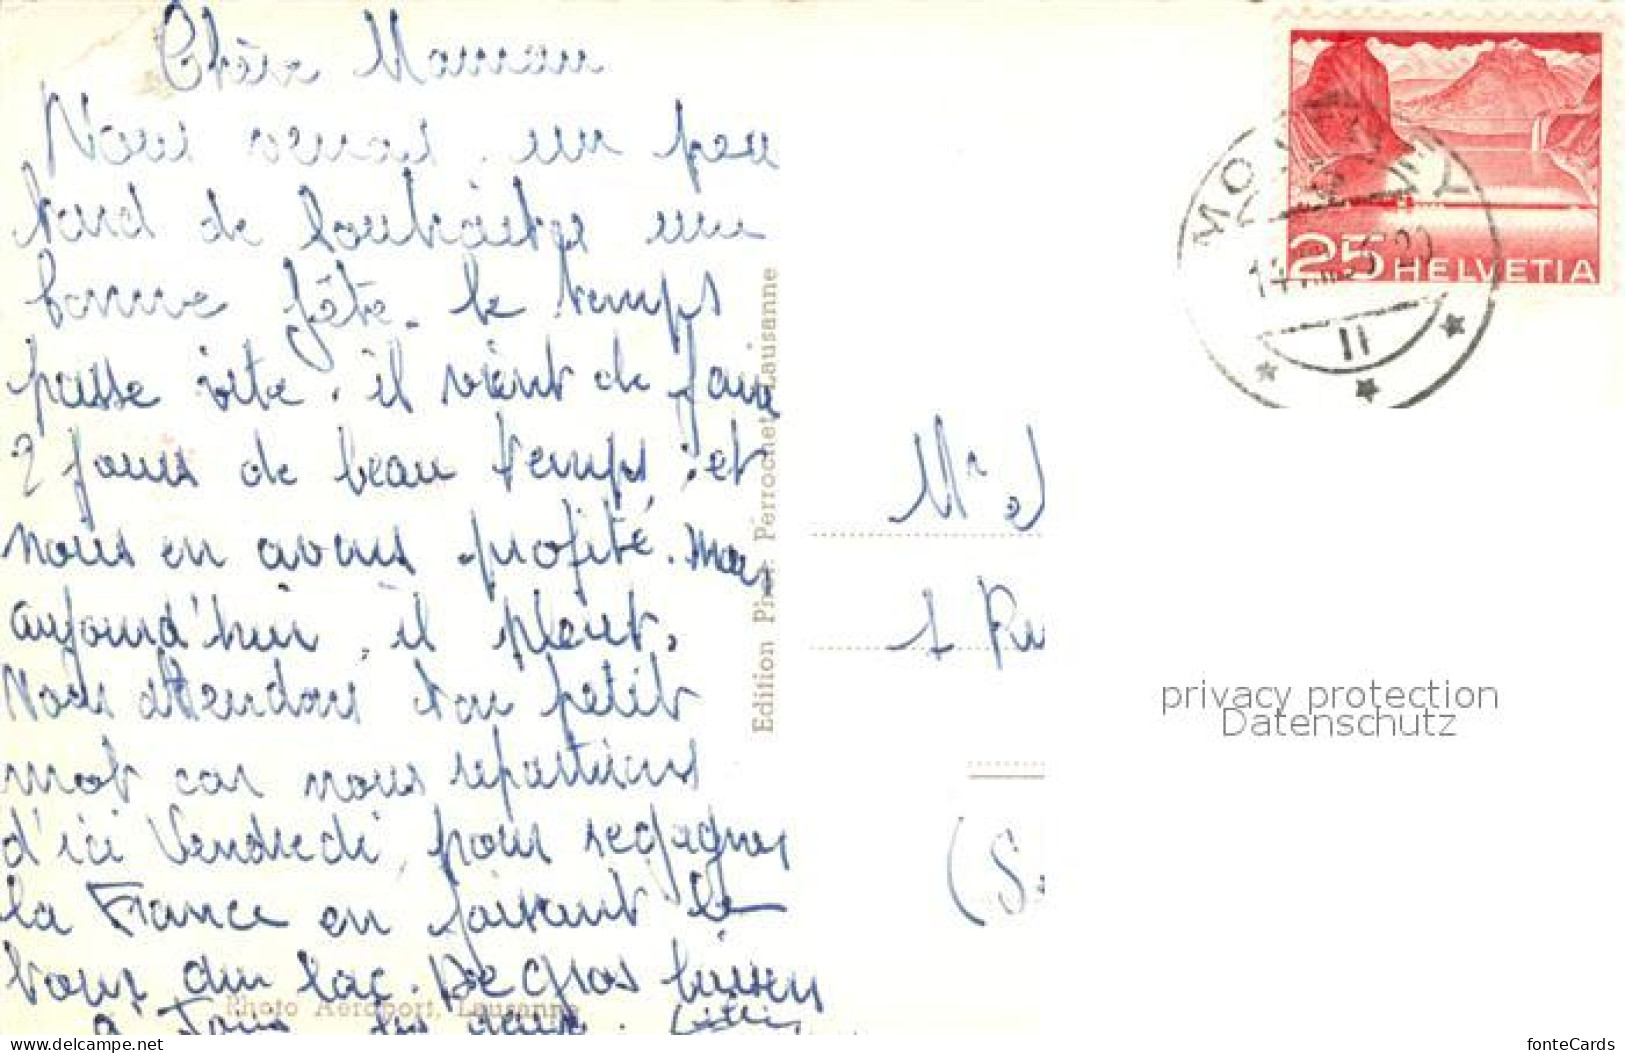 Chère Maman
Nous venons un peu
tard de souhaiter une
bonne fête. le temps
passe vite. il vient de faire
2 jours de beau temps et
nous en avons profité. mais
aujourd'hui, il pleut.
Nous attendons ton petit
mot car nous repartirons
d'ici Vendredi pour regagner
la France en faisant le
tour du lac. De gros baisers
à tous les deux.
Edition Phot. Perrochet, Lausanne
Photo Aéroport, Lausanne
25 HELVETIA
II
Mr
1 Ru
(S
privacy protection
Datenschutz
www.delcampe.net
fonteCards